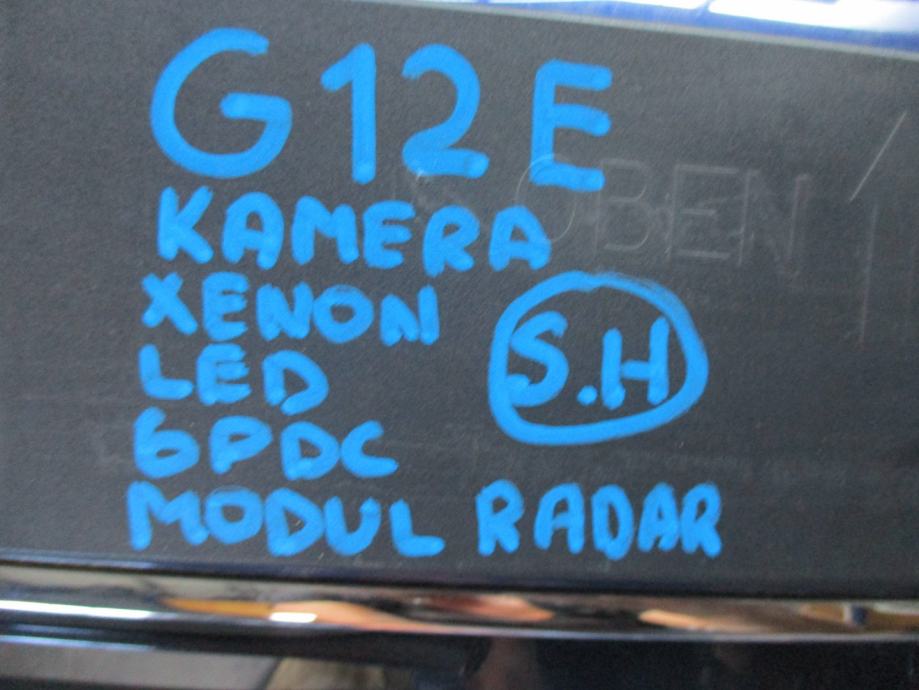 G12E
OBEN
KAMERA
XENON
S.H
LED
6PDC
MODUL RADAR